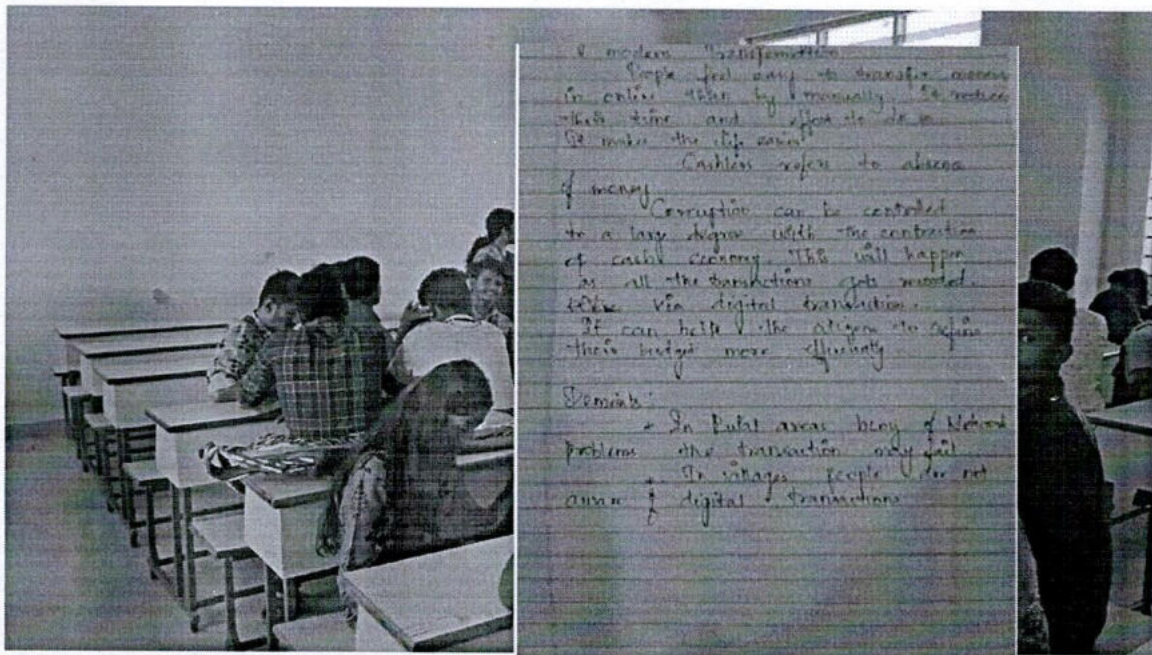 & modern Transformation
People feel easy to transfer money
in online than by manually. It reduce
their time and effort to do so
It makes the life easier
Cashless refers to absence
of money
Corruption can be controlled
to a large degree with the contraction
of cash economy. This will happen
as all the transactions gets recorded.
via digital transaction.
It can help the citizens to
their budget more efficiently
Demerits:
* In Rulal areas bcoz of Network
problems the transaction may fail
* In villages people are not
aware of digital transactions